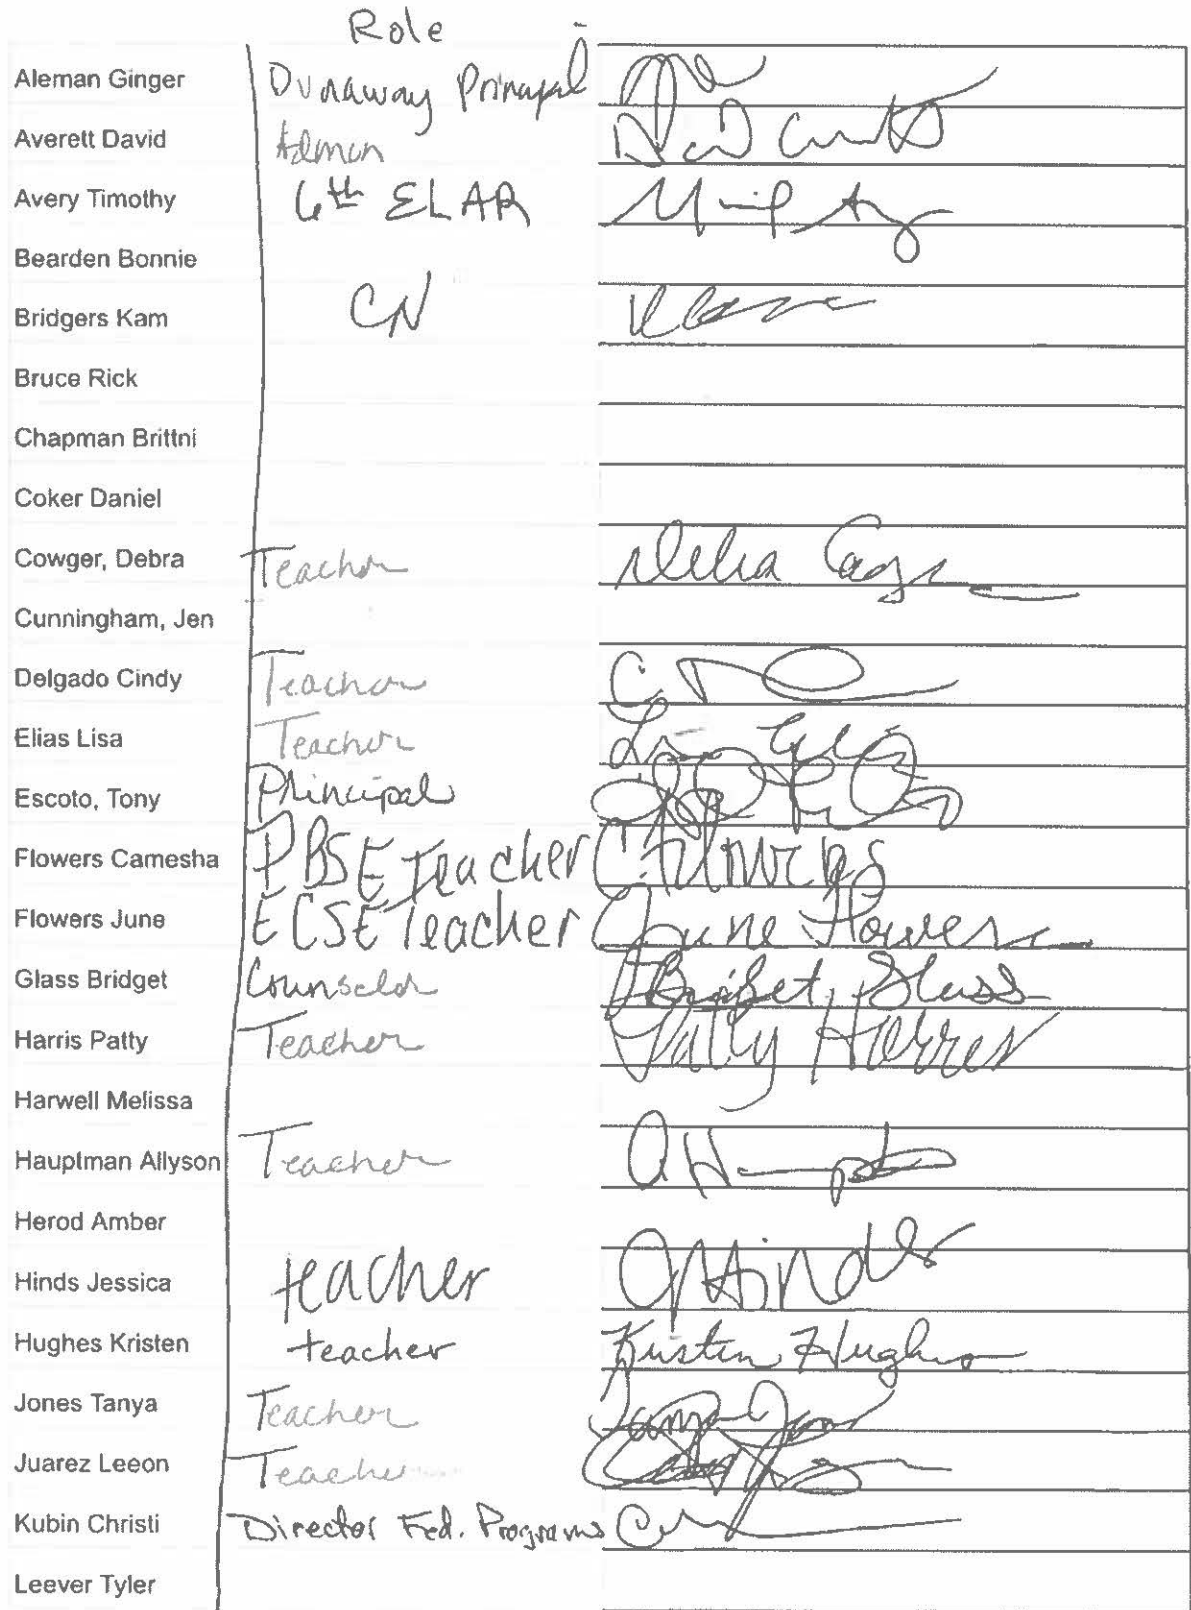 Role
Aleman Ginger Dunaway Principal
Averett David Admin
Avery Timothy 6th ELAR
Bearden Bonnie
Bridgers Kam CN
Bruce Rick
Chapman Brittni
Coker Daniel
Cowger, Debra Teacher
Cunningham, Jen
Delgado Cindy Teacher
Elias Lisa Teacher
Escoto, Tony Principal
Flowers Camesha PBSE Teacher C Flowers
Flowers June ECSE Teacher June Flowers
Glass Bridget Counselor Bridget Glass
Harris Patty Teacher Patty Harris
Harwell Melissa
Hauptman Allyson Teacher
Herod Amber
Hinds Jessica teacher
Hughes Kristen teacher Kristen Hughes
Jones Tanya Teacher Tanya Jones
Juarez Leeon Teacher
Kubin Christi Director Fed. Programs
Leever Tyler